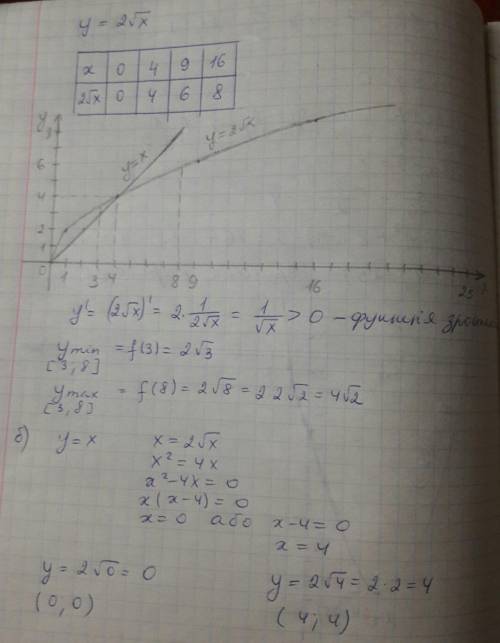 y = 2√x
x 0 4 9 16
2√x 0 4 6 8
y
8
6
4
2
1
0 1 3 4 8 9 16 25
y=x
y=2√x
y' = (2√x)' = 2·1/(2√x) = 1/√x > 0 – функція
y min [3;8] = f(3) = 2√3
y max [3,8] = f(8) = 2√8 = 2 2√2 = 4√2
б) y = x x = 2√x
x² = 4x
x² - 4x = 0
x(x-4) = 0
x = 0 або x-4 = 0
x = 4
y = 2√0 = 0 y = 2√4 = 2·2 = 4
(0; 0) (4; 4)